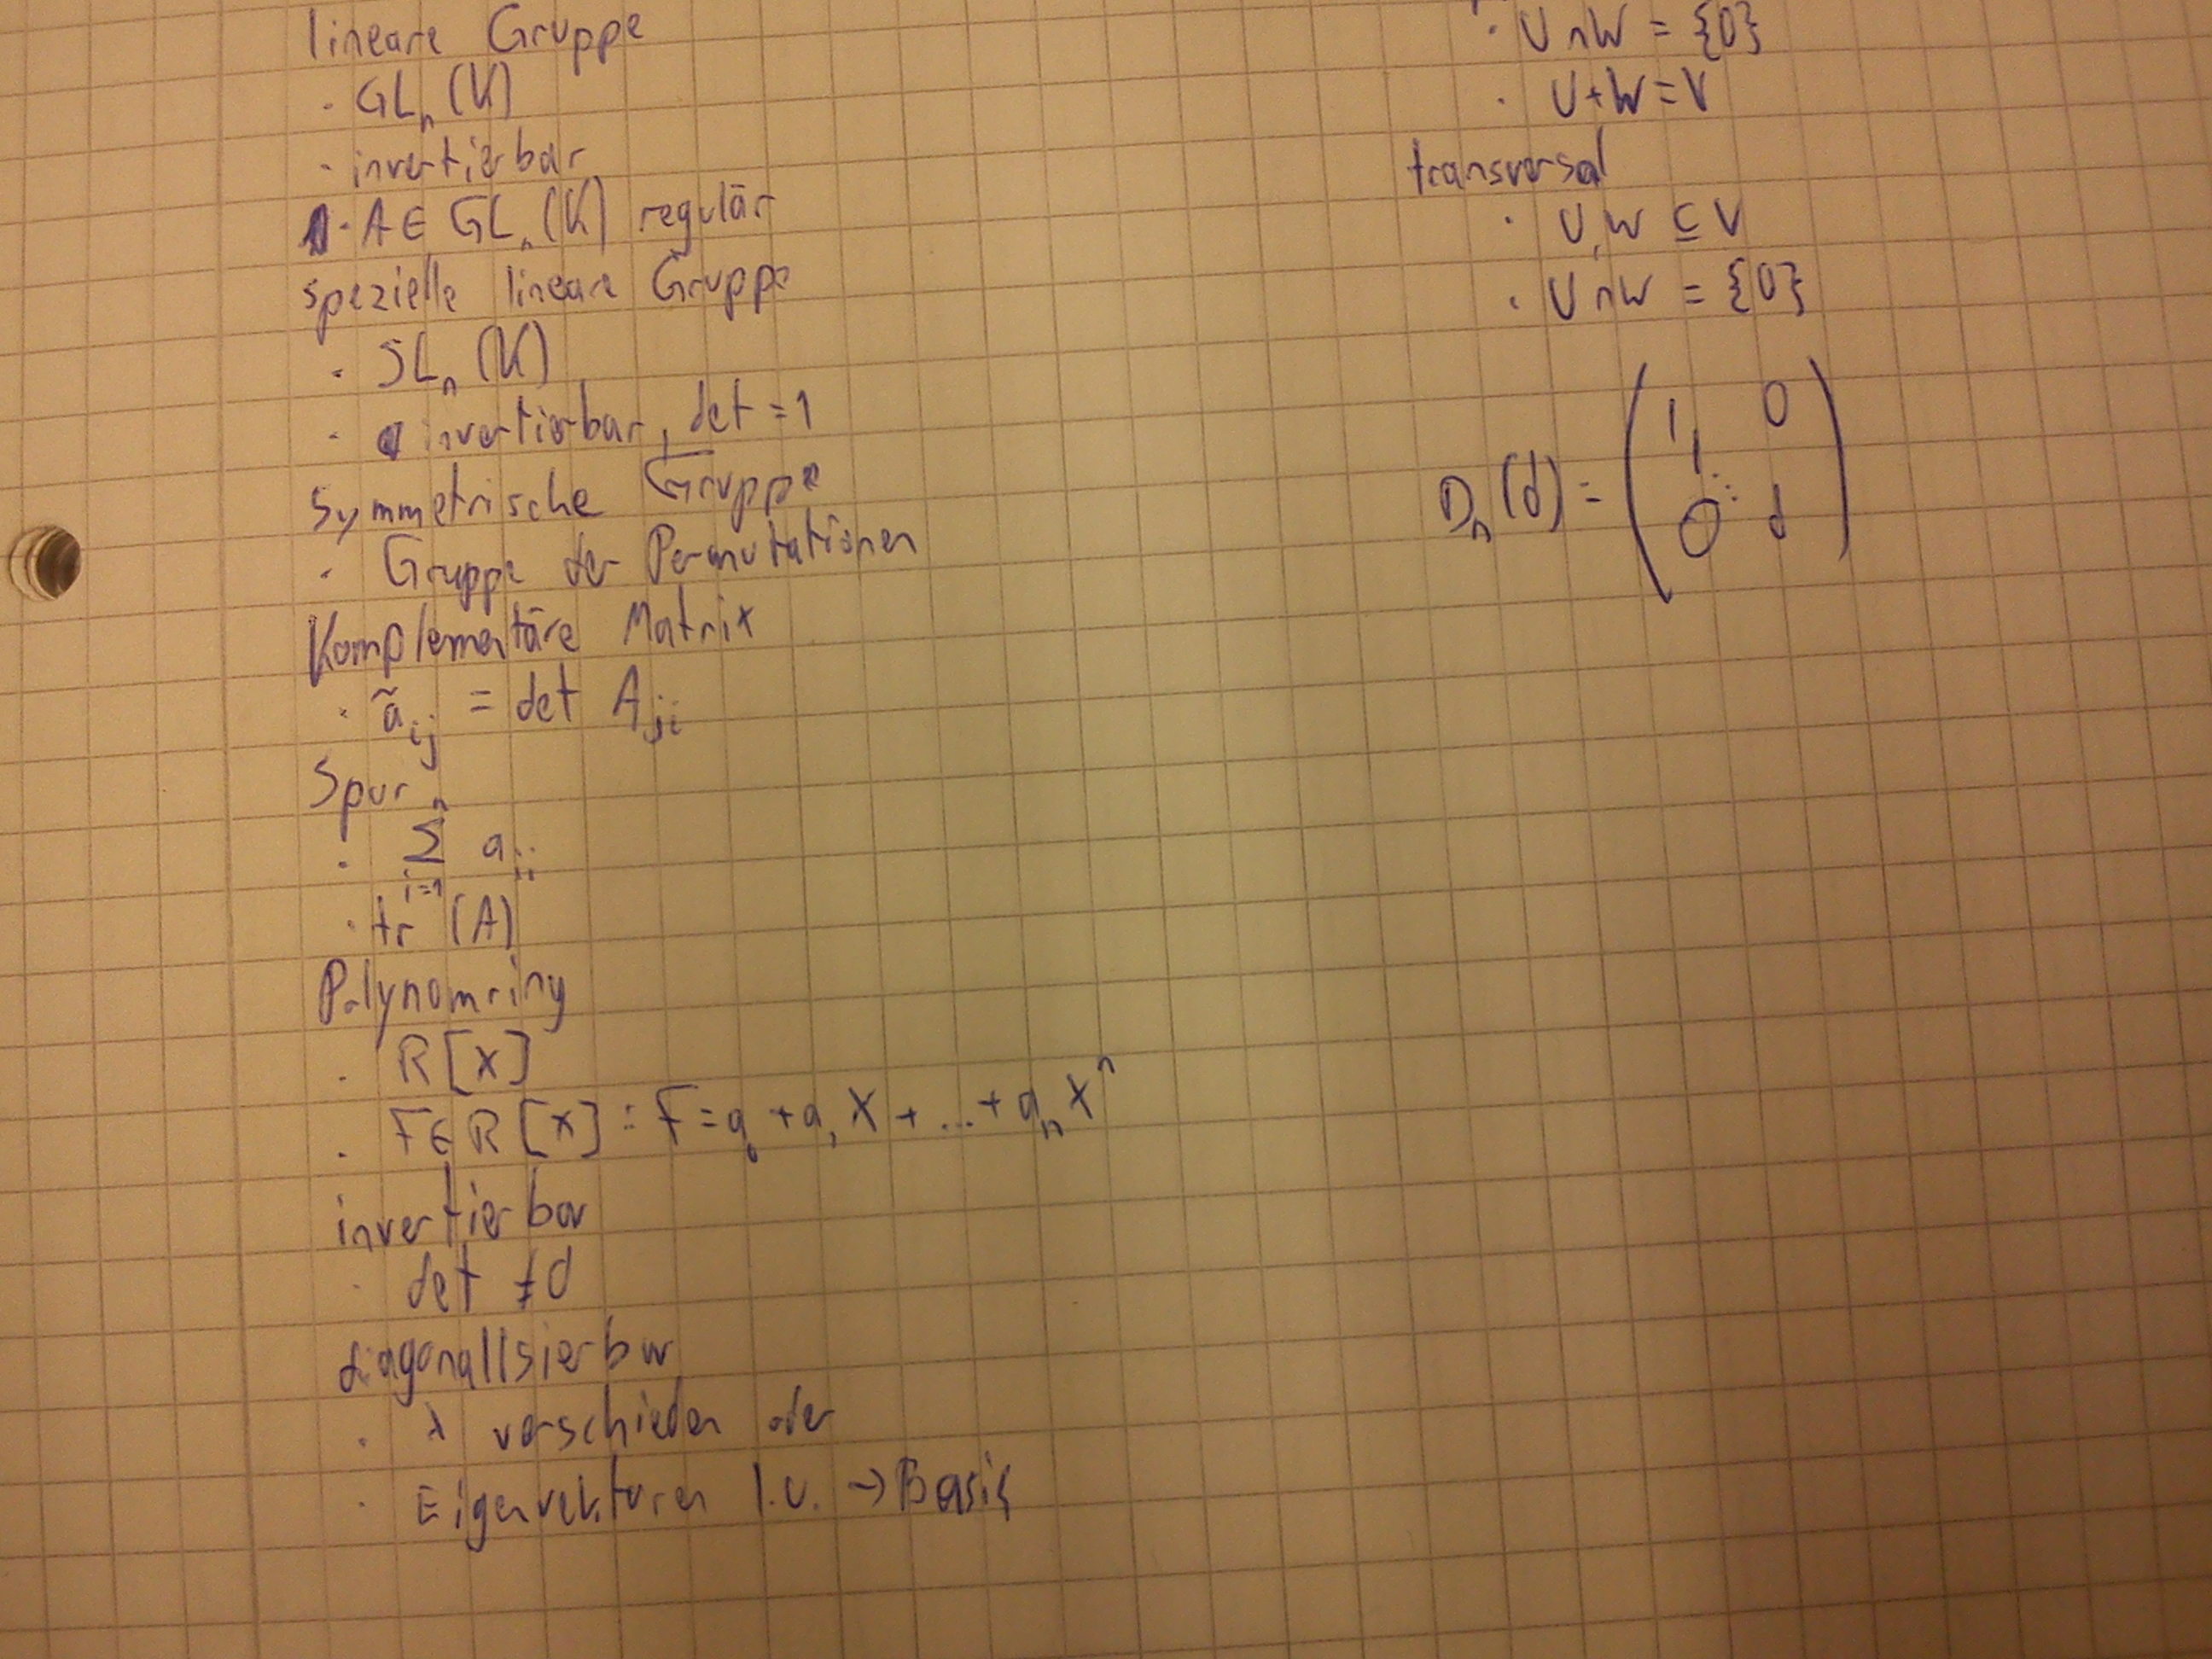 lineare Gruppe
· GLₙ(K)
· invertierbar
· A ∈ GLₙ(K) regulär
spezielle lineare Gruppe
· SLₙ(K)
· invertierbar, det = 1
Symmetrische Gruppe
· Gruppe der Permutationen
Komplementäre Matrix
· ãᵢⱼ = det Aⱼᵢ
Spur
· ∑ᵢ₌₁ⁿ aᵢᵢ
· tr (A)
Polynomring
· R[X]
· F∈R[X] : F = a₀ + a₁X + ... + aₙXⁿ
invertierbar
· det ≠ 0
diagonalisierbar
· λ verschieden oder
· Eigenvektoren l.u. → Basis
· U∩W = {0}
· U+W=V
transversal
· U,W ⊆ V
· U∩W = {0}
Dₙ(d) = ( 1 0
1 ⋱
0 d )